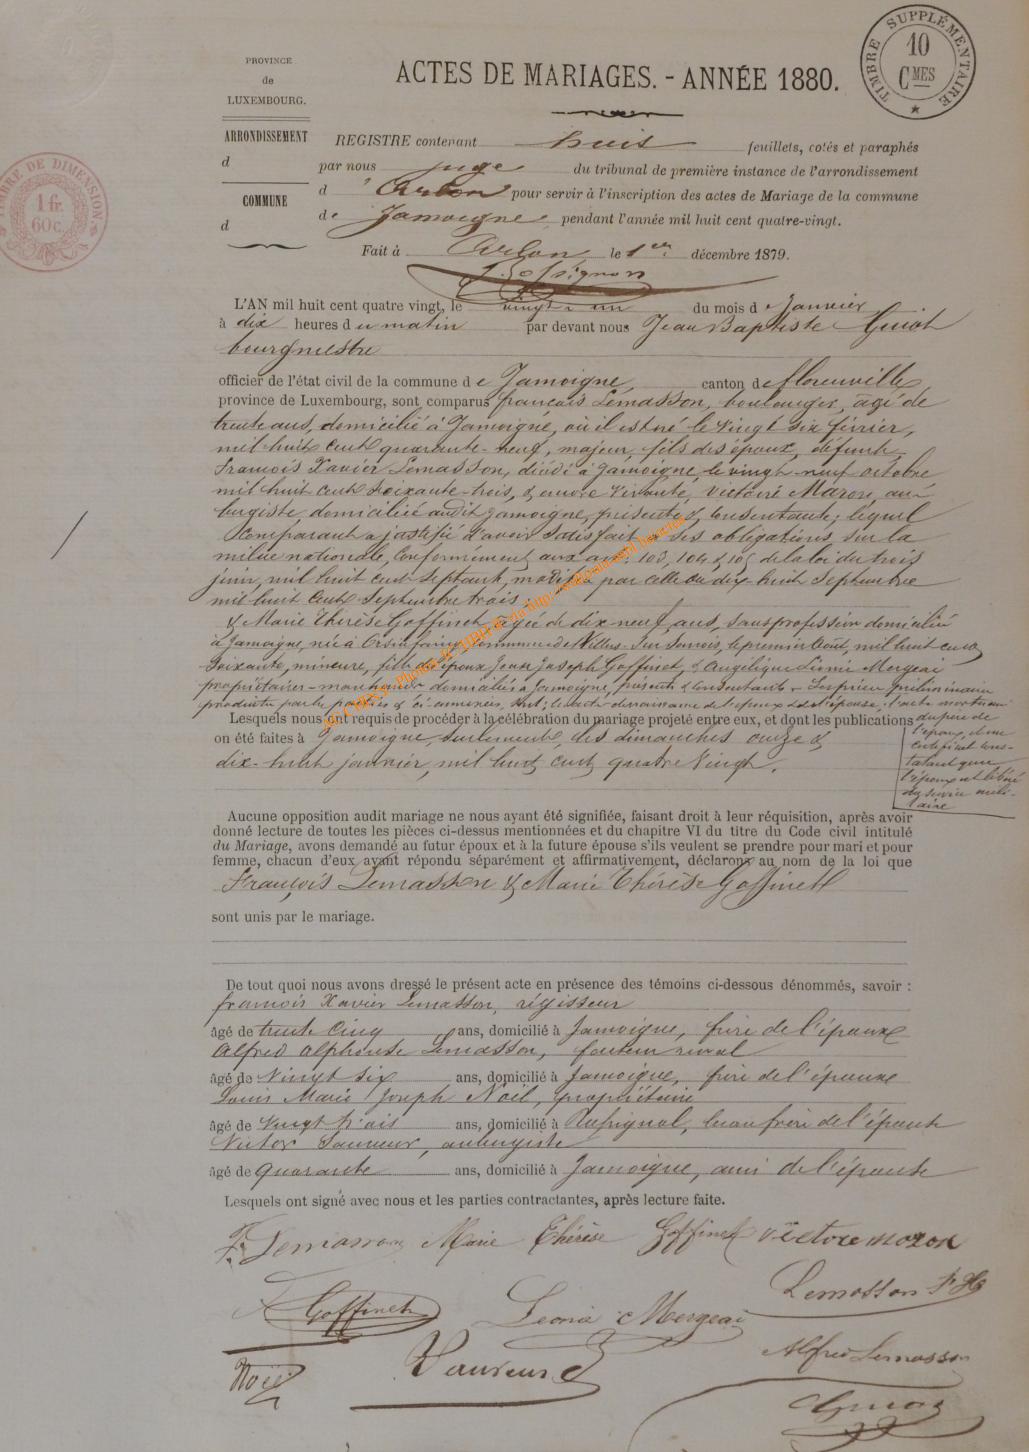 PROVINCE
de
LUXEMBOURG.
ARRONDISSEMENT
d
COMMUNE
d
TIMBRE DE DIMENSION
1 fr.
60c.
TIMBRE SUPPLÉMENTAIRE
10
CMES
ACTES DE MARIAGES. - ANNÉE 1880.
REGISTRE contenant huit feuillets, cotés et paraphés
par nous juge du tribunal de première instance de l'arrondissement
d'Arlon pour servir à l'inscription des actes de Mariage de la commune
de Jamoigne, pendant l'année mil huit cent quatre-vingt.
Fait à Arlon le 1er décembre 1879.
L'AN mil huit cent quatre vingt, le vingt un du mois de Janvier
à dix heures du matin par devant nous Jean Baptiste Guiot
bourgmestre
officier de l'état civil de la commune de Jamoigne, canton de florenville,
province de Luxembourg, sont comparus françois Lemasson, boulanger, âgé de
trente ans, domicilié à Jamoigne, où il est né le vingt six février,
mil huit cent quarante-neuf, majeur, fils des époux, défunt
François Xavier Lemasson, décédé à Jamoigne, le vingt-neuf octobre
mil huit cent soixante-trois, & encore vivante, Victoire Maron, au-
bergiste, domiciliée audit Jamoigne, présente & consentante; lequel
Comparant a justifié d'avoir satisfait à ses obligations sur la
milice nationale, Conformément aux art. 103, 104 & 105 de la loi du trois
juin, mil huit cent septante, modifiée par celle du dix-huit Septembre
mil huit cent Septante trois.
& Marie Thérèse Goffinet, agée de dix neuf ans, sans profession domiciliée
à Jamoigne, née à Orsinfaing, commune de Villers-Sur-Semois, le premier août, mil huit cent
Soixante, mineure, fille des époux Jean Joseph Goffinet, & Angélique Léonie Mergeai
propriétaires- domiciliés à Jamoigne, présents & consentants -
produites par les parties & ci-annexées, sont; les actes de naissance de l'époux & de l'épouse; l'acte mortuaire
du père de
l'époux, & un
certificat cons-
tatant que
l'époux est libéré
du service mili-
taire
Lesquels nous ont requis de procéder à la célébration du mariage projeté entre eux, et dont les publications
on été faites à Jamoigne, seulement, les dimanches onze &
dix-huit janvier, mil huit cent quatre Vingt.
Aucune opposition audit mariage ne nous ayant été signifiée, faisant droit à leur réquisition, après avoir
donné lecture de toutes les pièces ci-dessus mentionnées et du chapitre VI du titre du Code civil intitulé
du Mariage, avons demandé au futur époux et à la future épouse s'ils veulent se prendre pour mari et pour
femme, chacun d'eux ayant répondu séparément et affirmativement, déclarons au nom de la loi que
François Lemasson & Marie Thérèse Goffinet
sont unis par le mariage.
De tout quoi nous avons dressé le présent acte en présence des témoins ci-dessous dénommés, savoir :
françois Xavier Lemasson, régisseur
âgé de trente Cinq ans, domicilié à Jamoigne, frère de l'époux
Alfred alphonse Lemasson, facteur rural
âgé de Vingt six ans, domicilié à Jamoigne, frère de l'époux
Louis Marie Joseph Noël, propriétaire
âgé de Vingt trois ans, domicilié à Rossignol, beau frère de l'épouse
Victor Sauveur, aubergiste
âgé de quarante ans, domicilié à Jamoigne, ami de l'épouse
Lesquels ont signé avec nous et les parties contractantes, après lecture faite.
F. Lemasson Marie Thérèse Goffinet victoire maron
Goffinet Léonie Mergeai Lemasson
Noël Sauveur Alfred Lemasson
Guiot